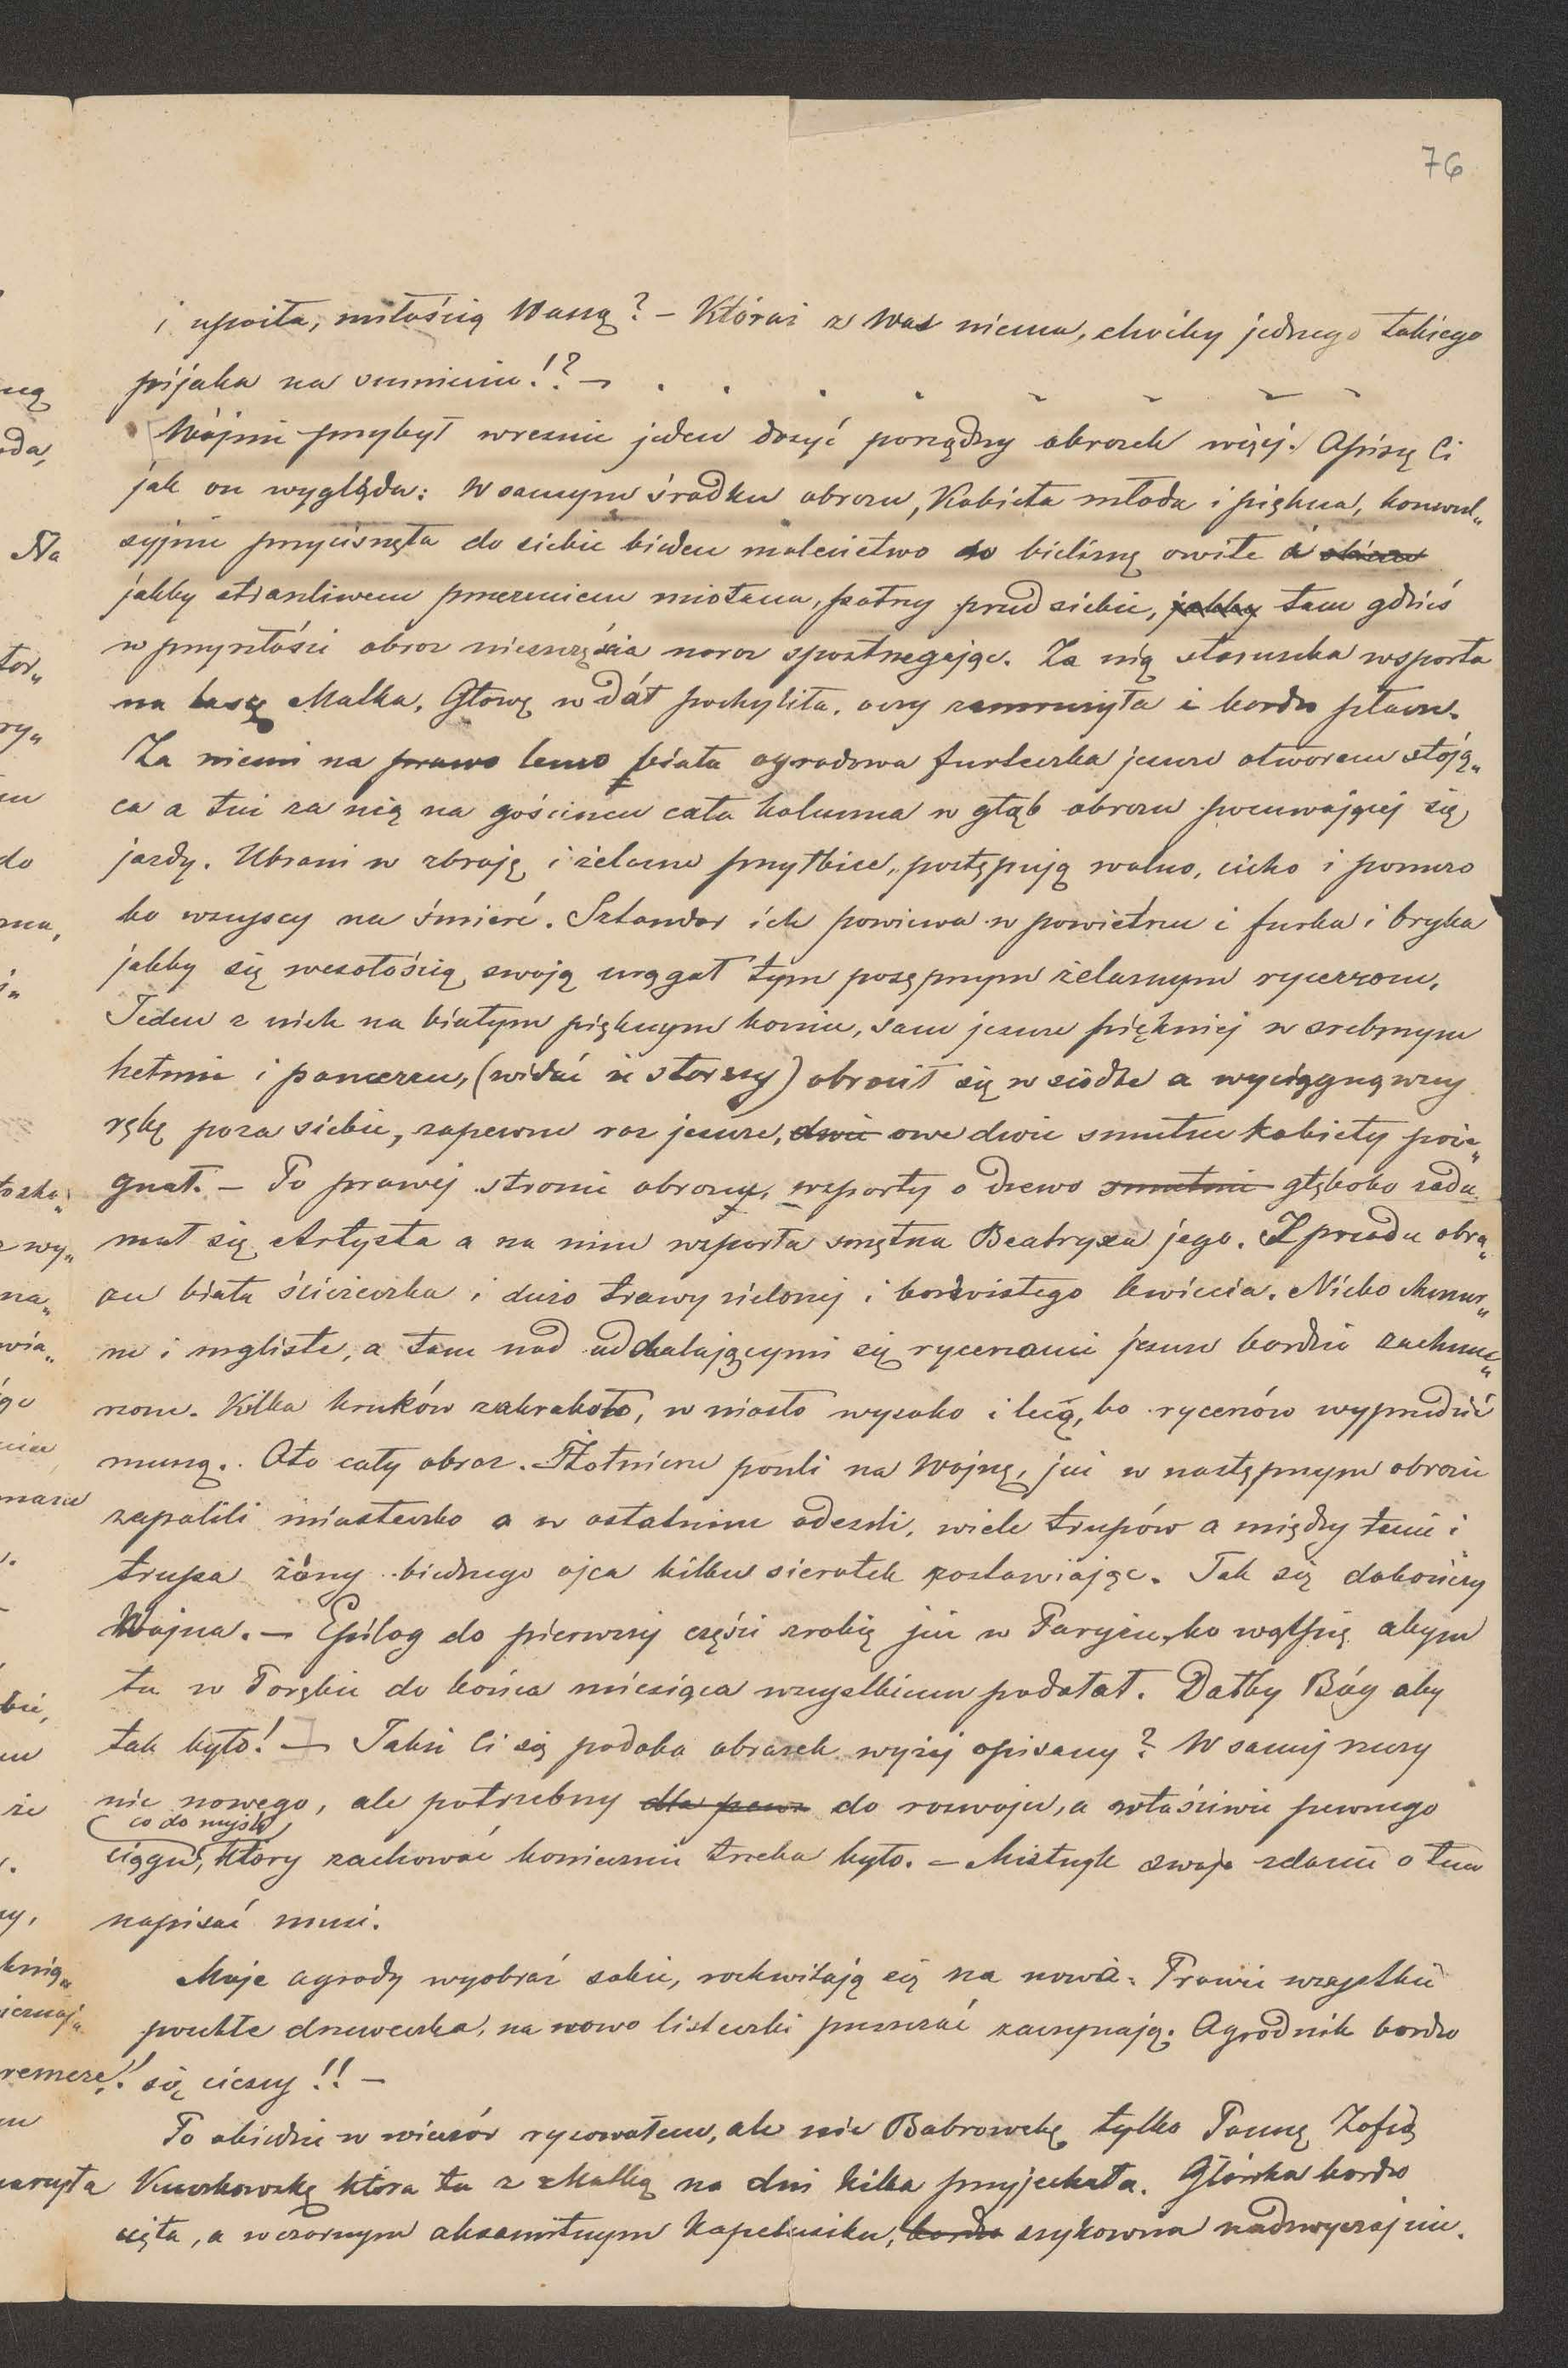 76
i upoiła, miłością Waszą? – Któraż z Was niema, choćby jednego takiego
pijaka na sumieniu!? –
Wojnie przybył wreszcie jeden dosyć porządny obrazek więcej. Opiszę Ci
jak on wygląda: W samym środku obrazu, Kobieta młoda i piękna, konwul„
syjnie przycisnęła do siebie biedne maleństwo w bieliznę owite i
jakby straszliwem przeczuciem miotana, patrzy przed siebie, jakby tam gdzieś
w przyszłości obraz nieszczęścia naraz spostrzegając. Za nią staruszka wsparta
na lasce Matka, Głowę w dół pochyliła, oczy zamrużyła i bardzo płacze.
Za niemi na prawo lewo biała ogrodowa furteczka jeszcze otworem stoją„
ca a tuż za nią na gościńcu cała kolumna w głąb obrazu posuwającej się
jazdy. Ubrani w zbroję i żelazne przyłbice, postępują wolno, cicho i ponuro
bo wszyscy na śmierć. Sztandar ich powiewa w powietrzu i furka i bryka
jakby się wesołością swoją urągał tym posępnym żelaznym rycerzom.
Jeden z nich na białym pięknym koniu, sam jeszcze piękniej w srebrnym
hełmie i pancerzu, (widać że starszy) obrócił się w siodle a wyciągnąwszy
rękę poza siebie, zapewne raz jeszcze, dwie owe dwie smutne kobiety poże„
gnał. – Po prawej stronie obrazu, wsparty o drzewo smutnie głęboko zadu„
mał się Artysta a na nim wsparta smętna Beatryxa jego. Z przodu obra„
zu biała ścieżeczka i dużo trawy zielonej i barwistego kwiecia. Niebo chmur„
ne i mgliste, a tam nad oddalającymi się rycerzami jeszcze bardziej zachmu„
rzone. Kilka kruków zakrakało, wniosło wysoko i lecą, bo rycerzów wyprzedzić
muszą. Oto cały obraz. Żołnierze poszli na Wojnę, już w następnym obrazie
zapalili miasteczko a w ostatnim odeszli, wiele trupów a między temi i
trupa żony biednego ojca kilku sierotek zostawiając. Tak się dokończy
Wojna. – Epilog do pierwszej części zrobię już w Paryżu, bo wątpię abym
tu w Porębie do końca miesiąca wszystkiemu podołał. Dałby Bóg aby
tak było! – Jakże Ci się podoba obrazek wyżej opisany? W samej rzeczy
nic nowego, ale potrzebny dla pewn do rozwoju, a właściwie pewnego
co do myśli
ciągu, który zachować koniecznie trzeba było. – Mistrzyk swoje zdanie o tem
napisać musi.
Moje ogrody wyobraź sobie, rozkwitają się na nowo. Prawie wszystkie
poschłe drzeweczka, na nowo listeczki puszczać zaczynają. Ogrodnik bardzo
się cieszy!! –
Po obiedzie w wieczór rysowałem, ale nie Bobrowskę tylko Pannę Zofię
która tu z Matką na dni kilka przyjechała. Główka bardzo
cięta, a w czarnym aksamitnym kapelusiku, bardzo szykowna nadzwyczajnie.